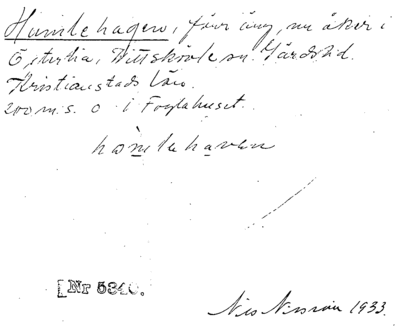 Humlehagen, förr äng, nu åker i
Vittskövle sn. Gärds hd.
Kristianstads län.
200 m. s. o. i Foglahuset.
[Nr 5840.
Nils Nilsson 1933.